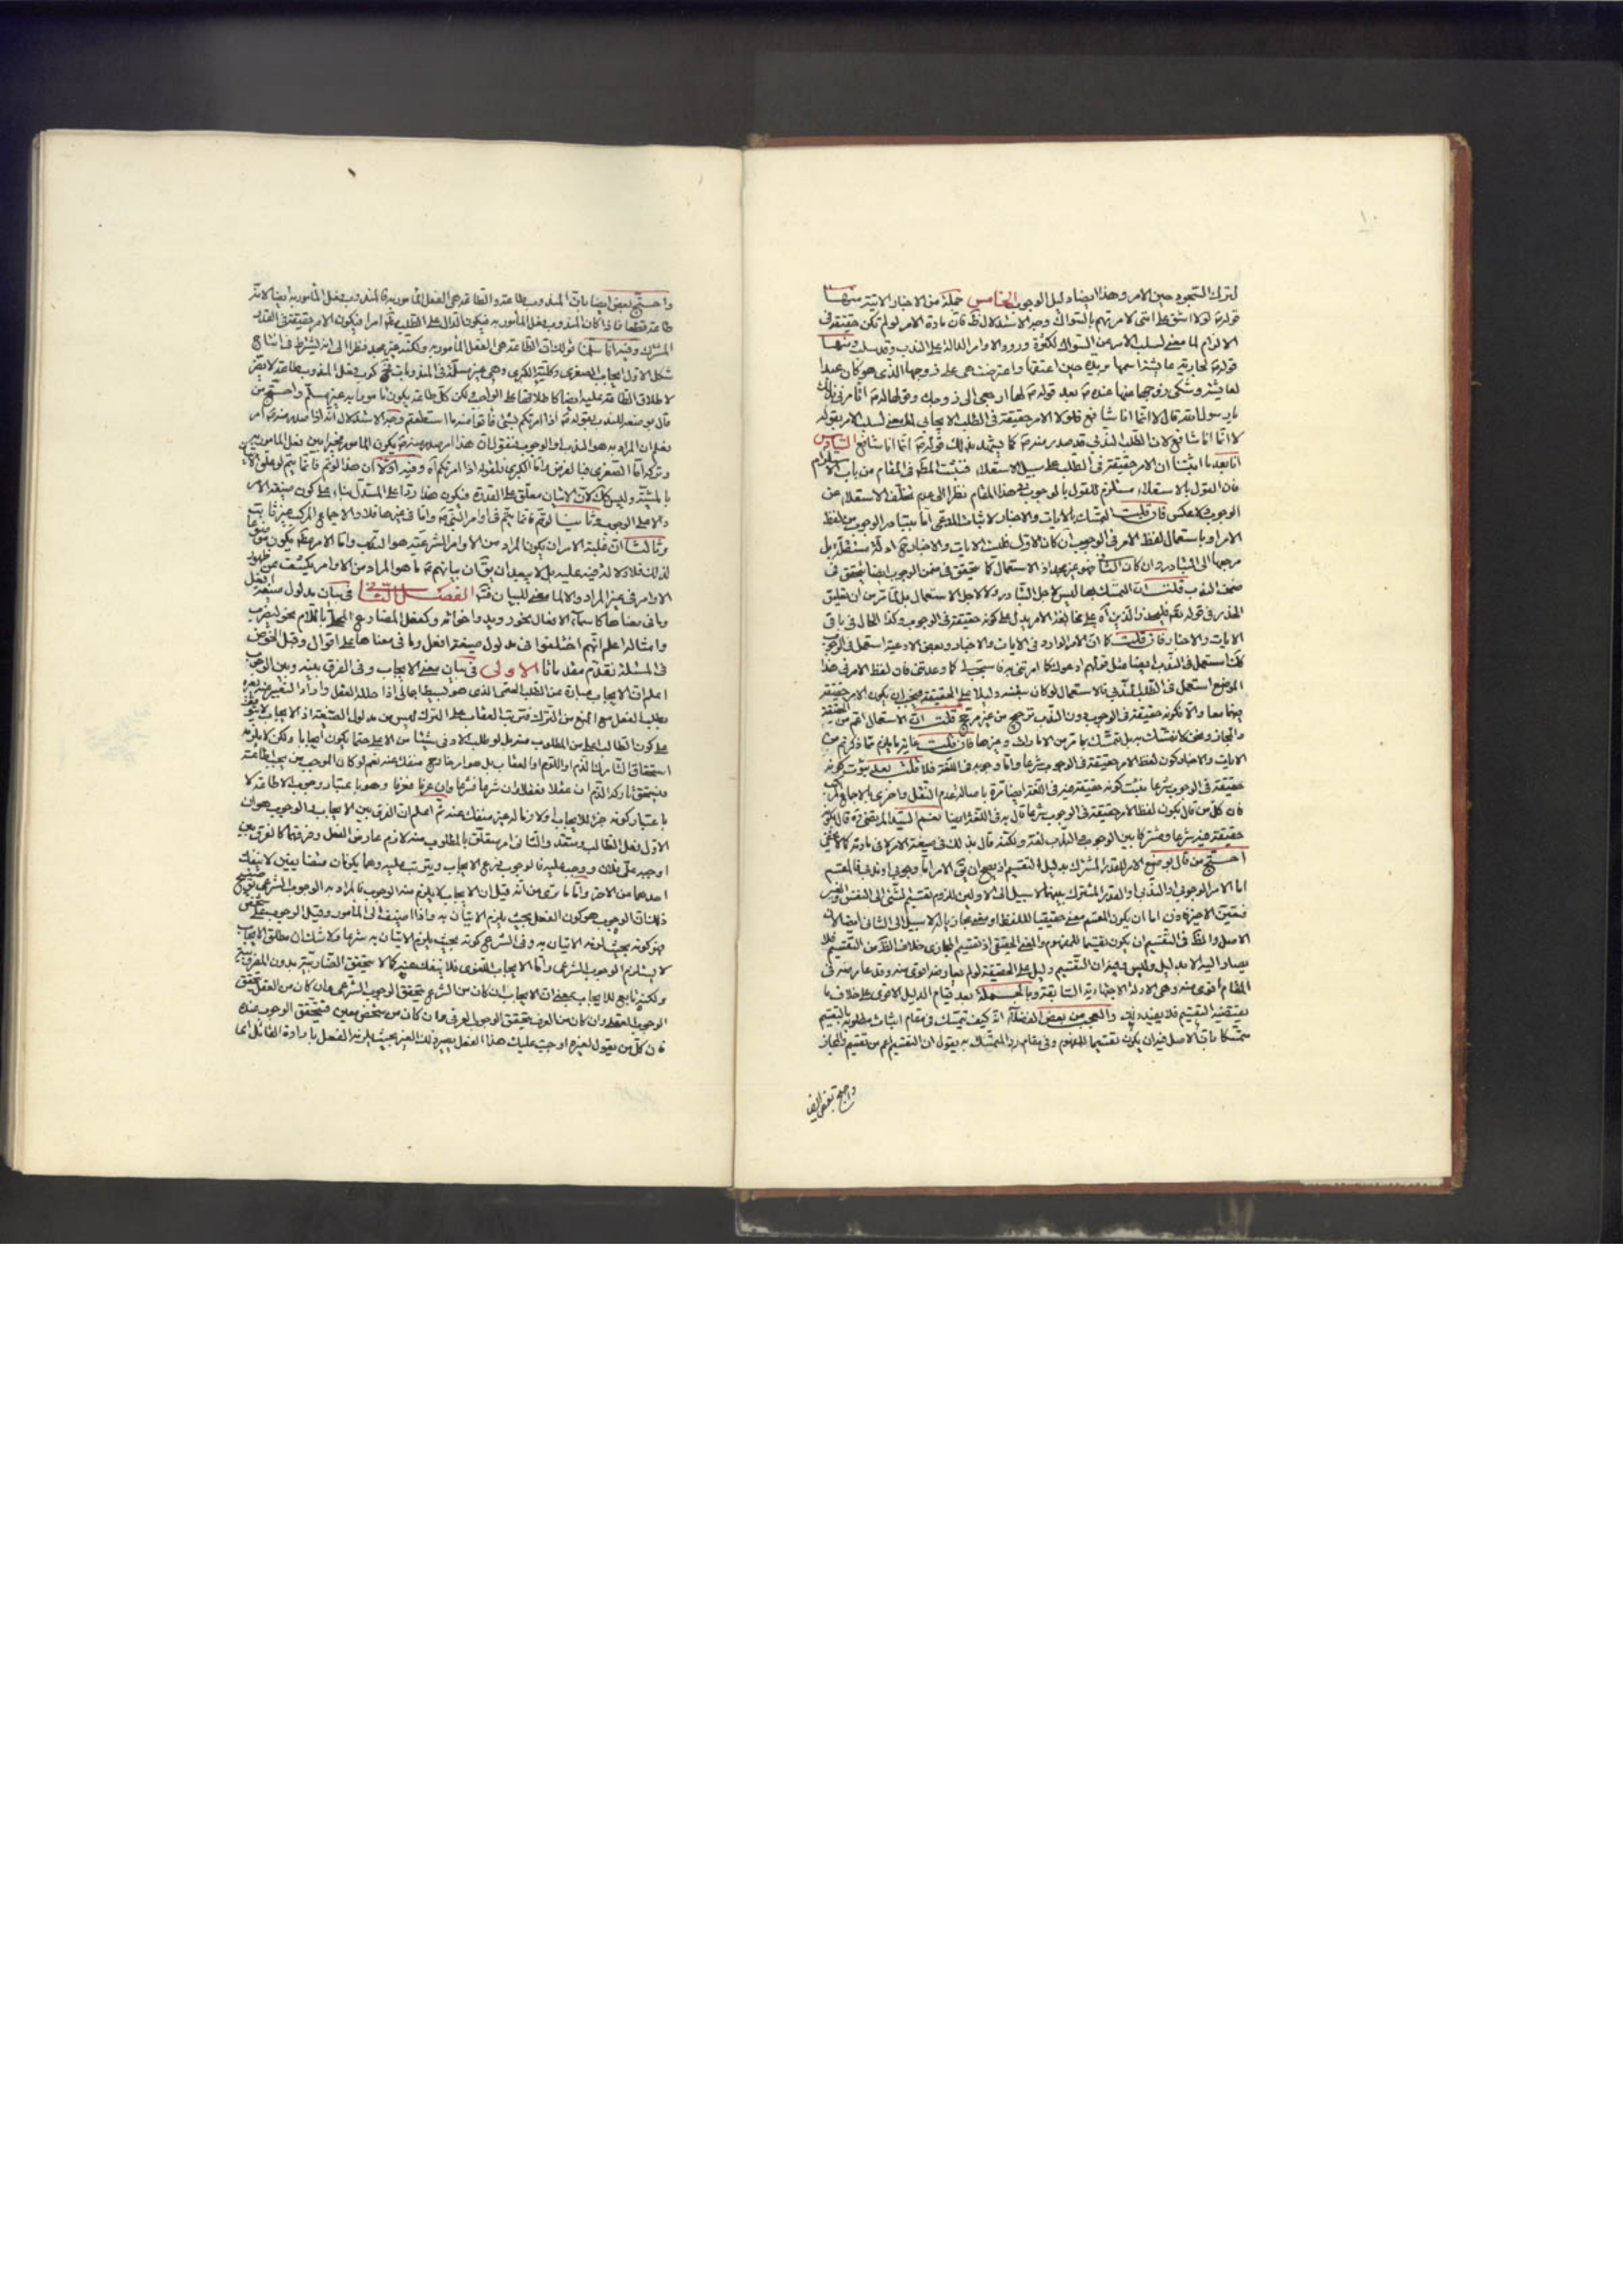 لترك السجود حين الامر وهذا ايضا دليل الوجوب الخامس جملة من الاخبار الاتية منها
قوله لولا اشق على امتى لامرتهم بالسواك وجه الاستدلال انه فان مادة الامر لو لم تكن حقيقة فى
الالزام لما معنى لسلب الامر من السواك لكثرة ورود الاوامر الدالة على الندب وقد سلب ومنها
قوله لجارية عايشة اسمها بريدة حين اعتقها واعترضت هى على زوجها الذى هو كان عبدا
لعايشة وشكى زوجها عنها عنده بعد قوله لها ارجعى الى زوجك وقولها له اتامرنى بذلك
يا رسول الله قال لا انما انا شافع فلو لا الامر حقيقة فى الطلب الايجابى لما معنى لسلب الامر بقوله
لا انما انا شافع لان الطلب الندبى قد صدر منه كما يشهد بذلك قوله انما انا شافع السادس
انا بعد ما اثبتنا ان الامر حقيقة فى الطلب على سبيل الاستعلاء فثبت المط فى المقام من باب الاستلزام
فان القول بالاستعلاء مستلزم للقول بالوجوب فى هذا المقام نظرا الى عدم تخلف الاستعلاء عن
الوجوب كالعكس فان قلت التمسك بالايات والاخبار لاثبات المدعى اما بتبادر الوجوب من لفظ
الامر او باستعمال لفظ الامر فى الوجوب ان كان الاول فليست الايات والاخبار ح ادلة مستقلة بل
مرجعها الى التبادر وان كان الثانى فهو غير مجد اذ الاستعمال كما يتحقق فى ضمن الوجوب ايضا يتحقق فى
ضمن الندب قلت ان التمسك بها ليس لاجل التبادر ولا لاجل الاستعمال بل لما تر من ان تعليق
الحذر فى قوله تعم فليحذر الذين اه على مخالفة الامر يدل على كونه حقيقة فى الوجوب وكذا الحال فى باقى
الايات والاخبار فان قلت كما ان الامر الوارد فى الايات والاخبار وبعض الادعية استعمل فى الوجوب
كك استعمل فى الندب ايضا مثل قولهم ادعوك كما امرتنى فاستجب لى كما وعدتنى فان لفظ الامر فى هذا
الموضع استعمل فى الطلب الندبى فالاستعمال لو كان بنفسه دليلا على الحقيقة فيجب ان يكون الامر حقيقة
فيهما معا والا فكونه حقيقة فى الوجوب دون الندب ترجيح من غير مرجح قلت ان الاستعمال اعم من الحقيقة
والمجاز ونحن لا نتمسك به بل نتمسك بما تر من الامارات وغيرها فان قلت غاية ما يلزم مما ذكرتم من
الايات والاخبار كون لفظ الامر حقيقة فى الوجوب شرعا واما وجوبه فى اللغة فلا قلت بعد ثبوت كونه
حقيقة فى الوجوب شرعا يثبت كونه حقيقة فيه فى اللغة ايضا تارة باصالة عدم النقل واخرى بالاجماع المركب
فان كل من قال بكون لفظ الامر حقيقة فى الوجوب شرعا قال به فى اللغة ايضا نعم السيد المرتضى ره قال بكونه
حقيقة فيه شرعا ومشتركا بين الوجوب والندب لغة ولكنه قال بذلك فى صيغة الامر لا فى مادته كما لا يخفى
احتج من قال بوضع الامر للقدر المشترك بدليل التقسيم اذ يصح ان يق الامر اما وجوبى او ندبى فالمقسم
اما الامر الوجوبى او الندبى او القدر المشترك بينهما لا سبيل الى الاولين للزوم تقسيم الشئ الى النفس والغير
فتعين الاخير اما ان يكون المقسم معنى حقيقيا للفظ او معنى مجازيا له لا سبيل الى الثانى ايضا لان
الاصل والظ فى التقسيم ان يكون تقسيما للمفهوم والمعنى الحقيقى اذ تقسيم المجازى خلاف الظ من التقسيم فلا
يصار اليه الا بدليل وليس فيه ان التقسيم دليل على الحقيقة لو لم يعارضه اقوى منه وقد عارضه فى
المقام اقوى منه وهى الادلة الاجتهادية السابقة وبالجملة بعد قيام الدليل الاقوى على خلاف ما
يقتضيه التقسيم فلا يفيد والعجب من بعض الفضلاء انه كيف تمسك فى مقام اثبات مطلوبه بالتقسيم
متمسكا بان الاصل فيه ان يكون تقسيما للمفهوم وفى مقام رد المتمسك به يقول ان التقسيم اعم من تقسيم والمجاز
واحتج بعض ايضا
واحتج بعض ايضا بان المندوب طاعة والطاعة هى الفعل المامور به فالمندوب فعل المأمور به ايضا لانه
طاعة قطعا فاذا كان المندوب فعل المأمور به فيكون الدال على الطلب امرا فيكون الامر حقيقة فى القدر
المشترك وفيه انا سلمنا قولك ان الطاعة هى الفعل المأمور به ولكنه غير مجد نظرا الى انه يشترط فى انتاج
شكل الاول ايجاب الصغرى وكلية الكبرى وهى غير مسلمة فى المندوبات كون فعل المندوب طاعة لا يضر
لاطلاق الطاعة عليه ايضا كاطلاقها على الواجب ولكن كل طاعة يكون مامورا به غير مسلم واحتج من
قال بوضعه للندب بقوله اذا امرتكم بشئ فاتوا منه ما استطعتم وجه الاستدلال انه اذا صدر منه امر
وتركه اما الصغرى فبالفرض واما الكبرى فلقوله اذا امرتكم اه وفيه اولا ان هذا لو تم فانما يتم لو علق الامر
بالمشية وليس كك لان الاتيان معلق على القدرة فيكون هذا ردا على المستدل بناء على كون صيغة الامر
دالا على الوجوب وثانيا لو تم فانما يتم فى اوامر النبى واما فى غيرها فلا والاجماع المركب غير ثابت
وثالثا ان غلبة الامر ان يكون المراد من الاوامر الشرعية هو الندب واما الامر فيكون موضوعا
لذلك فلا دلالة فيه عليه بل لا يبعد ان يق ان بيانهم ما هو المراد من الاوامر يكشف عن ظهور
الاوامر فى غير المراد والا لما معنى للبيان الفصل الثانى فى بيان مدلول صيغة افعل
وما فى معناها كاسماء الافعال نحو رويد واخواته وكفعل المضارع المحلى باللام نحو ليضرب
وامثاله اعلم انهم اختلفوا فى مدلول صيغة افعل وما فى معناها على اقوال وقبل الخوض
فى المسئلة نقدم مقدمات الاولى فى بيان معنى الايجاب وفى الفرق بينه وبين الوجوب
اعلم ان الايجاب عبارة عن الطلب الحتمى الذى هو بسيط اجمالى اذا حلله العقل واراد التعبير عنه يعبره
بطلب الفعل مع المنع من الترك فترتب العقاب على الترك ليس من مدلول الصيغة اذ الايجاب لا يتوقف
على كون الطالب اعلى من المطلوب منه بل لو طلب الادنى شيئا من الاعلى حتما يكون ايجابا ولكن لا يلزمه
استحقاق التارك الذم واللوم والعقاب بل هو امر خارج منفك عنه نعم لو كان الموجب من يجب اطاعته
فيستحق تاركه الذم ان عقلا فعقلا وان شرعا فشرعا وان عرفا فعرفا وهو باعتبار وجوب الاطاعة لا
باعتبار كونه جزء للايجاب ولازما له غير منفك عنه ثم اعلم ان الفرق بين الايجاب والوجوب هو ان
الاول فعل الطالب والثانى امر متعلق بالمطلوب منه لازم عارض الفعل
احدهما من الاخر واما ما ترى من انه قيل ان الايجاب لا يلزم منه الوجوب فالمراد به الوجوب الشرعى
ذلك ان الوجوب هو كون الفعل بحيث يلزم الاتيان به واذا اضيف الى المأمور وقيل الوجوب على شخص
فهو كونه بحيث لزمه الاتيان به وفى الشرع كونه بحيث يلزم الاتيان به شرعا ولا شك ان مطلق الايجاب
لا يستلزم الوجوب الشرعى واما الايجاب اللغوى فلا ينفك عنه كما لا يتحقق الضاربية بدون المضروبية
ولكنه تابع للايجاب بمعنى ان الايجاب ان كان من الشرع يتحقق الوجوب الشرعى وان كان من العقل يتحقق
الوجوب العقلى وان كان من العرف يتحقق الوجوب العرفى وان كان من شخص معين فيتحقق الوجوب عنده
فان كل من يقول لغيره اوجبت عليك هذا الفعل يصير ذلك الغير بحيث يلزمه الفعل بارادة القائل